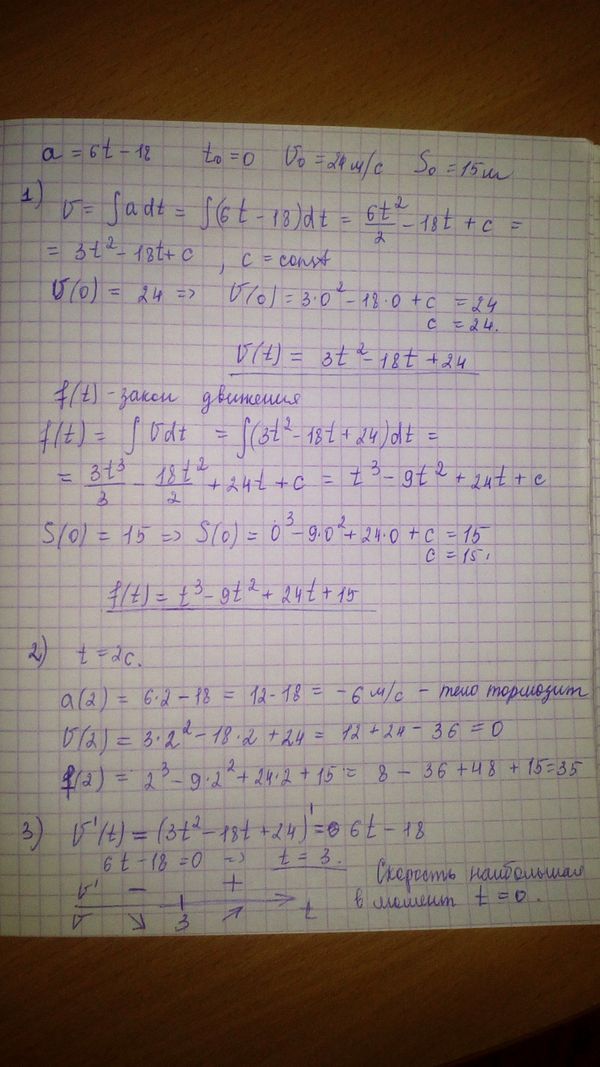 a = 6t - 18 t₀ = 0 V₀ = 24 м/с S₀ = 15 м
1) V = ∫ a dt = ∫(6t - 18)dt = 6t²/2 - 18t + c =
= 3t² - 18t + c , c = const
V(0) = 24 => V(0) = 3·0² - 18·0 + c = 24
c = 24.
V(t) = 3t² - 18t + 24
f(t) - закон движения
f(t) = ∫ V dt = ∫(3t² - 18t + 24)dt =
= 3t³/3 - 18t²/2 + 24t + c = t³ - 9t² + 24t + c
S(0) = 15 => S(0) = 0³ - 9·0² + 24·0 + c = 15
c = 15.
f(t) = t³ - 9t² + 24t + 15
2) t = 2c.
a(2) = 6·2 - 18 = 12 - 18 = -6 м/с - тело тормозит
V(2) = 3·2² - 18·2 + 24 = 12 + 24 - 36 = 0
f(2) = 2³ - 9·2² + 24·2 + 15 = 8 - 36 + 48 + 15 = 35
3) V'(t) = (3t² - 18t + 24)' = 6t - 18
6t - 18 = 0 => t = 3.
V' - +
V ↘ 3 ↗ t
Скорость наибольшая
в момент t = 0.